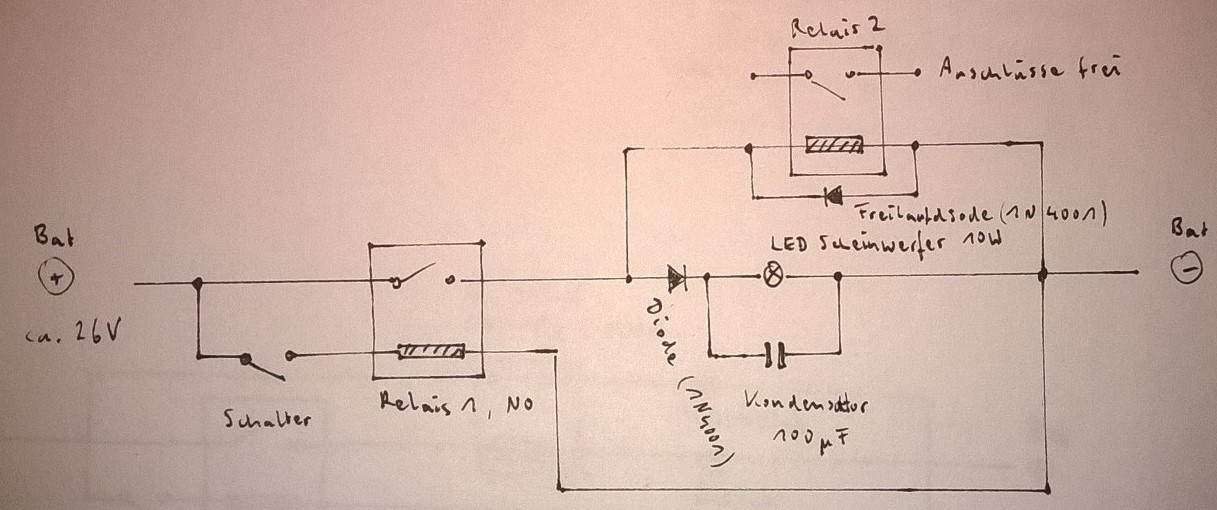 Relais 2
Anschlüsse frei
Freilaufdiode (1N4001)
LED Scheinwerfer 10W
Bat
+
ca. 26V
Bat
-
Diode (1N4001)
Schalter
Relais 1, NO
Kondensator
100µF